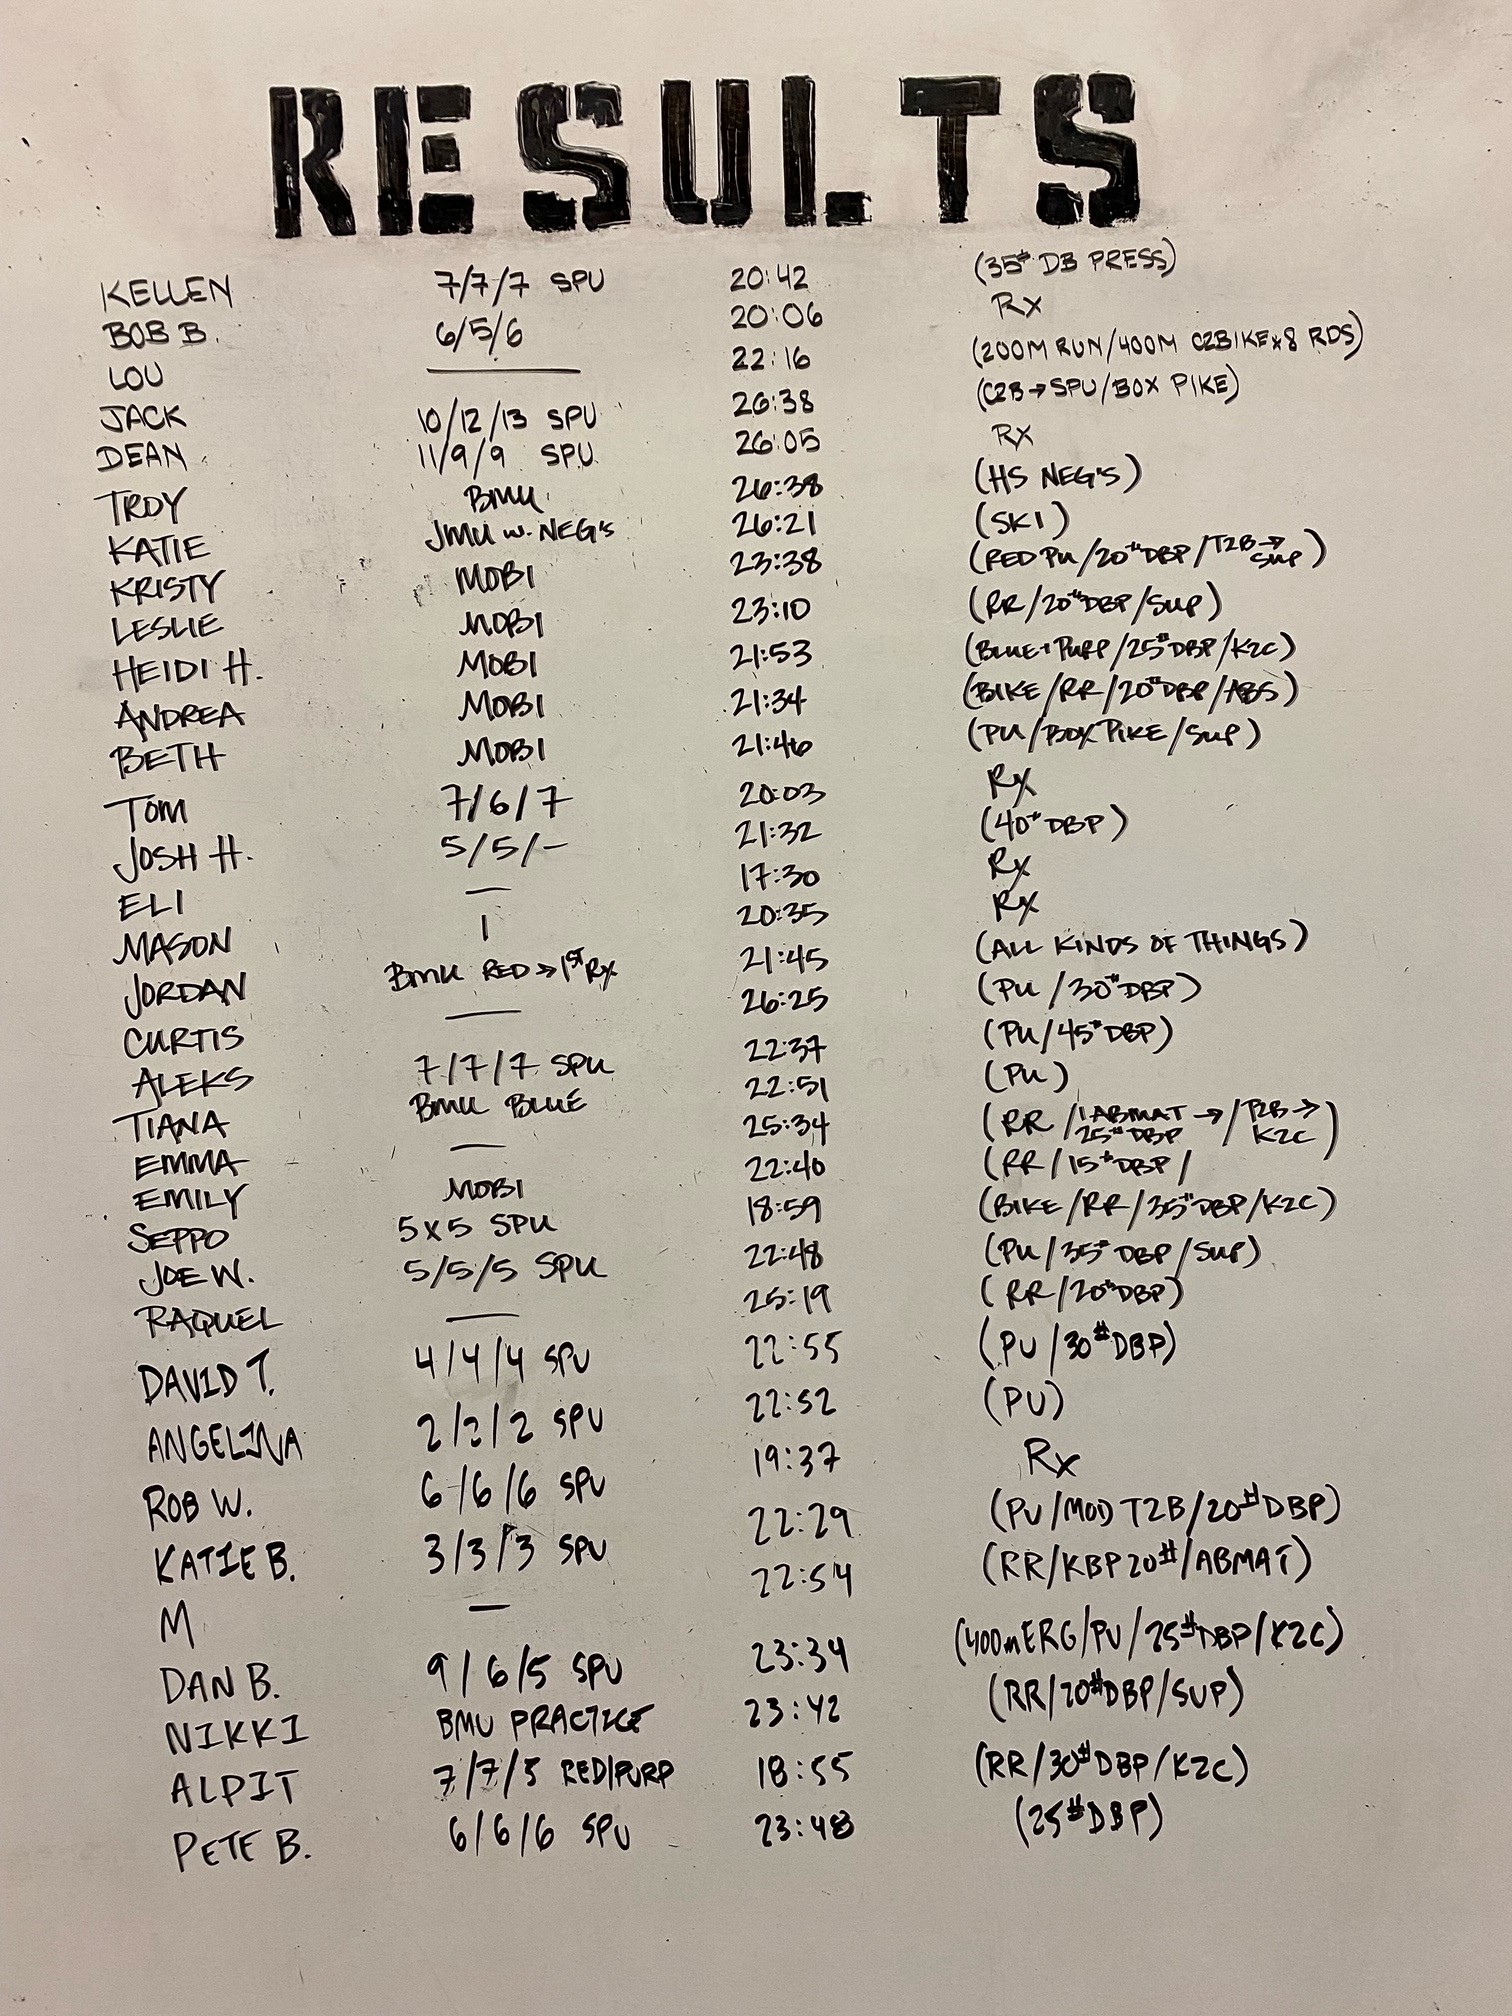 RESULTS
KELLEN 7/7/7 SPU 20:42 (35# DB PRESS)
BOB B. 6/5/6 20:06 Rx
LOU — 22:16 (200M RUN/400M C2BIKE x 8 RDS)
JACK 10/12/13 SPU 26:38 (C2B→SPU/BOX PIKE)
DEAN 11/9/9 SPU 26:05 Rx
TROY BMU 26:38 (HS NEG'S)
KATIE JMU W. NEG'S 26:21 (SKI)
KRISTY MOBI 23:38 (RED PU/20#DBP/T2B→SUP)
LESLIE MOBI 23:10 (RR/20#DBP/SUP)
HEIDI H. MOBI 21:53 (BLUE+PURP/25#DBP/K2C)
ANDREA MOBI 21:34 (BIKE/RR/20#DBP/ABS)
BETH MOBI 21:46 (PU/BOX PIKE/SUP)
TOM 7/6/7 20:03 Rx
JOSH H. 5/5/- 21:32 (40#DBP)
ELI — 17:30 Rx
MASON 1 20:35 Rx
JORDAN BMU RED→1ST Rx 21:45 (ALL KINDS OF THINGS)
CURTIS — 26:25 (PU/30#DBP)
ALEKS 7/7/7 SPU 22:37 (PU/45#DBP)
TIANA BMU BLUE 22:51 (PU)
EMMA — 25:34 (RR/1ABMAT→/25#DBP/T2B→K2C)
EMILY MOBI 22:40 (RR/15#DBP/
SEPPO 5x5 SPU 18:59 (BIKE/RR/35#DBP/K2C)
JOE W. 5/5/5 SPU 22:48 (PU/35#DBP/SUP)
RAQUEL — 25:19 (RR/20#DBP)
DAVID T. 4/4/4 SPU 22:55 (PU/30#DBP)
ANGELINA 2/2/2 SPU 22:52 (PU)
ROB W. 6/6/6 SPU 19:37 Rx
KATIE B. 3/3/3 SPU 22:29 (PU/MOD T2B/20#DBP)
M — 22:54 (RR/KBP20#/ABMAT)
DAN B. 9/6/5 SPU 23:34 (400mERG/PU/25#DBP/K2C)
NIKKI BMU PRACTICE 23:42 (RR/20#DBP/SUP)
ALPIT 7/7/5 RED/PURP 18:55 (RR/30#DBP/K2C)
PETE B. 6/6/6 SPU 23:48 (25#DBP)